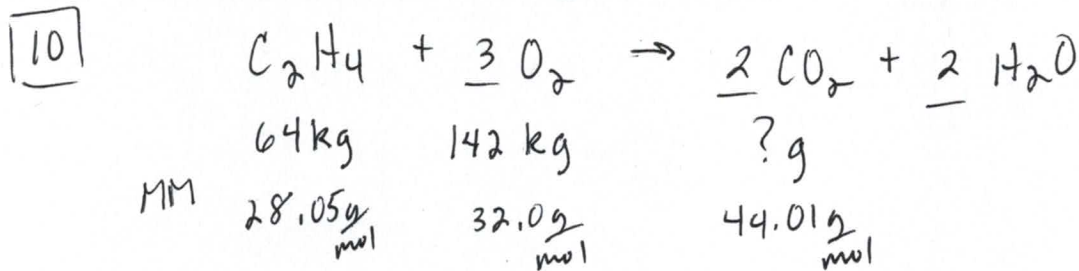 10 C₂H₄ + 3 O₂ → 2 CO₂ + 2 H₂O
64kg 142 kg ? g
MM 28.05 g/mol 32.0 g/mol 44.01 g/mol